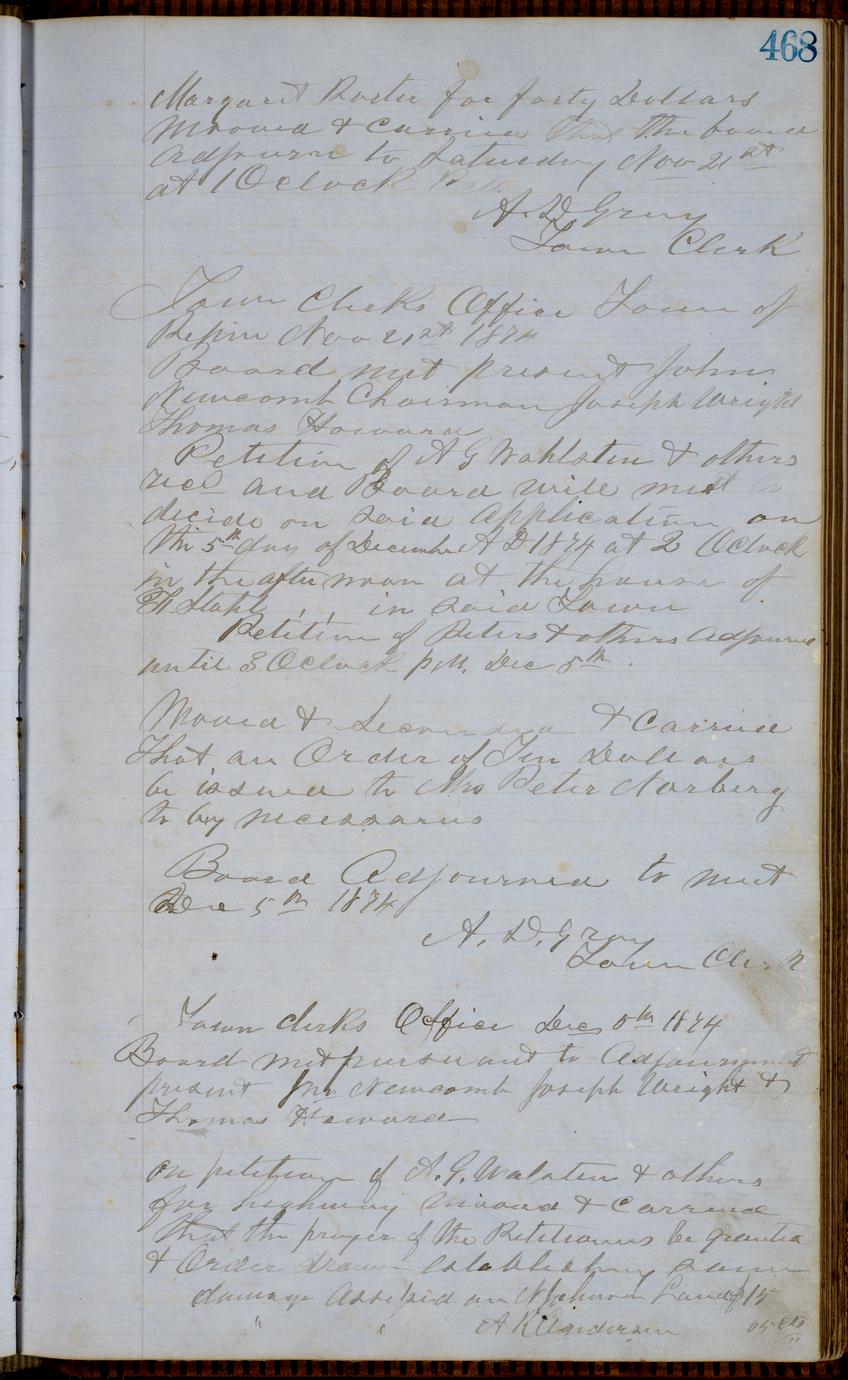 468
Margaret Roster for forty Dollars
Mooved & Carried that the board
adjourn to Saturday Nov 21st
at 1 Oclock P.M.
A. D. Gray
Town Clerk
Town Clerks Office Town of
Pepin Nov 21st 1874
Board met present John
Newcomb Chairman Joseph Wright
Thomas Howard
Petition of A G Wahlsten & others
recd and Board will meet to
decide on said application on
the 5th day of December A D 1874 at 2 Oclock
in the after noon at the house of
Stahl in said Town
Petition of Peters & others adjourned
until 3 Oclock P.M. Dec 5th.
Moved & Seconded & Carried
That an Order of Ten Dollars
be issued to Mrs Peter Norberg
to by necessarus
Board Adjourned to meet
Dec 5th 1874
A. D. Gray
Town Clerk
Town Clerks Office Dec 5th 1874
Board met pursuant to Adjournment
present Newcomb Joseph Wright &
Thomas Howard
on petition of A. G. Walsten & others
for highway mooved & Carried
that the prayer of the Petitioners be granted
& Order drawn establishing same
damage Assessed on Johnson Land $15
" " A K Anderson 05 cts